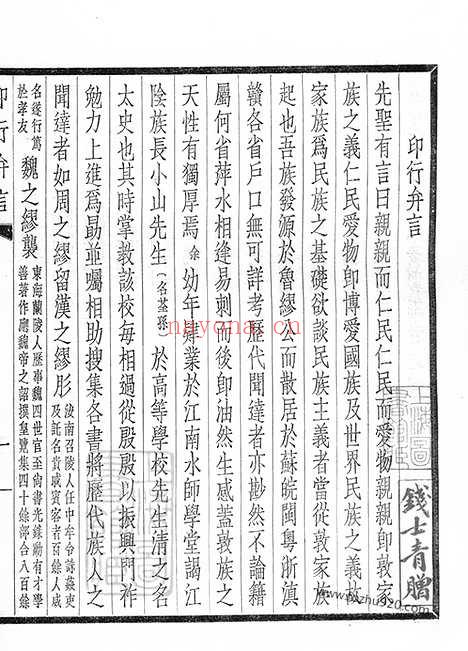 錢士青贈
印行弁言
先聖有言曰親親而仁民仁民而愛物親親卽敦家
族之義仁民愛物卽博愛國族及世界民族之義故
家族爲民族之基礎欲談民族主義者當從敦家族
起也吾族發源於魯繆公而散居於蘇皖閩粵浙滇
贛各省戶口無可詳考歷代聞達者亦尠然不論籍
屬何省萍水相逢易刺而後卽油然生感蓋敦族之
天性有獨厚焉余幼年肄業於江南水師學堂謁江
陰族長小山先生(名荃孫)於高等學校先生清之名
太史也其時掌教該校每相過從殷殷以振興門祚
勉力上進爲勗並囑相助搜集各書將歷代族人之
聞達者如周之繆留漢之繆肜汝南召陵人任中牟令誅姦吏及託名貴戚賓客者百餘人威
名遂行篤於孝友魏之繆襲東海蘭陵人歷事魏四世官至尚書光錄勳有才學善著作膺魏帝之詔撰皇覽集四十餘部合八百餘
印行弁言
nayona.cn